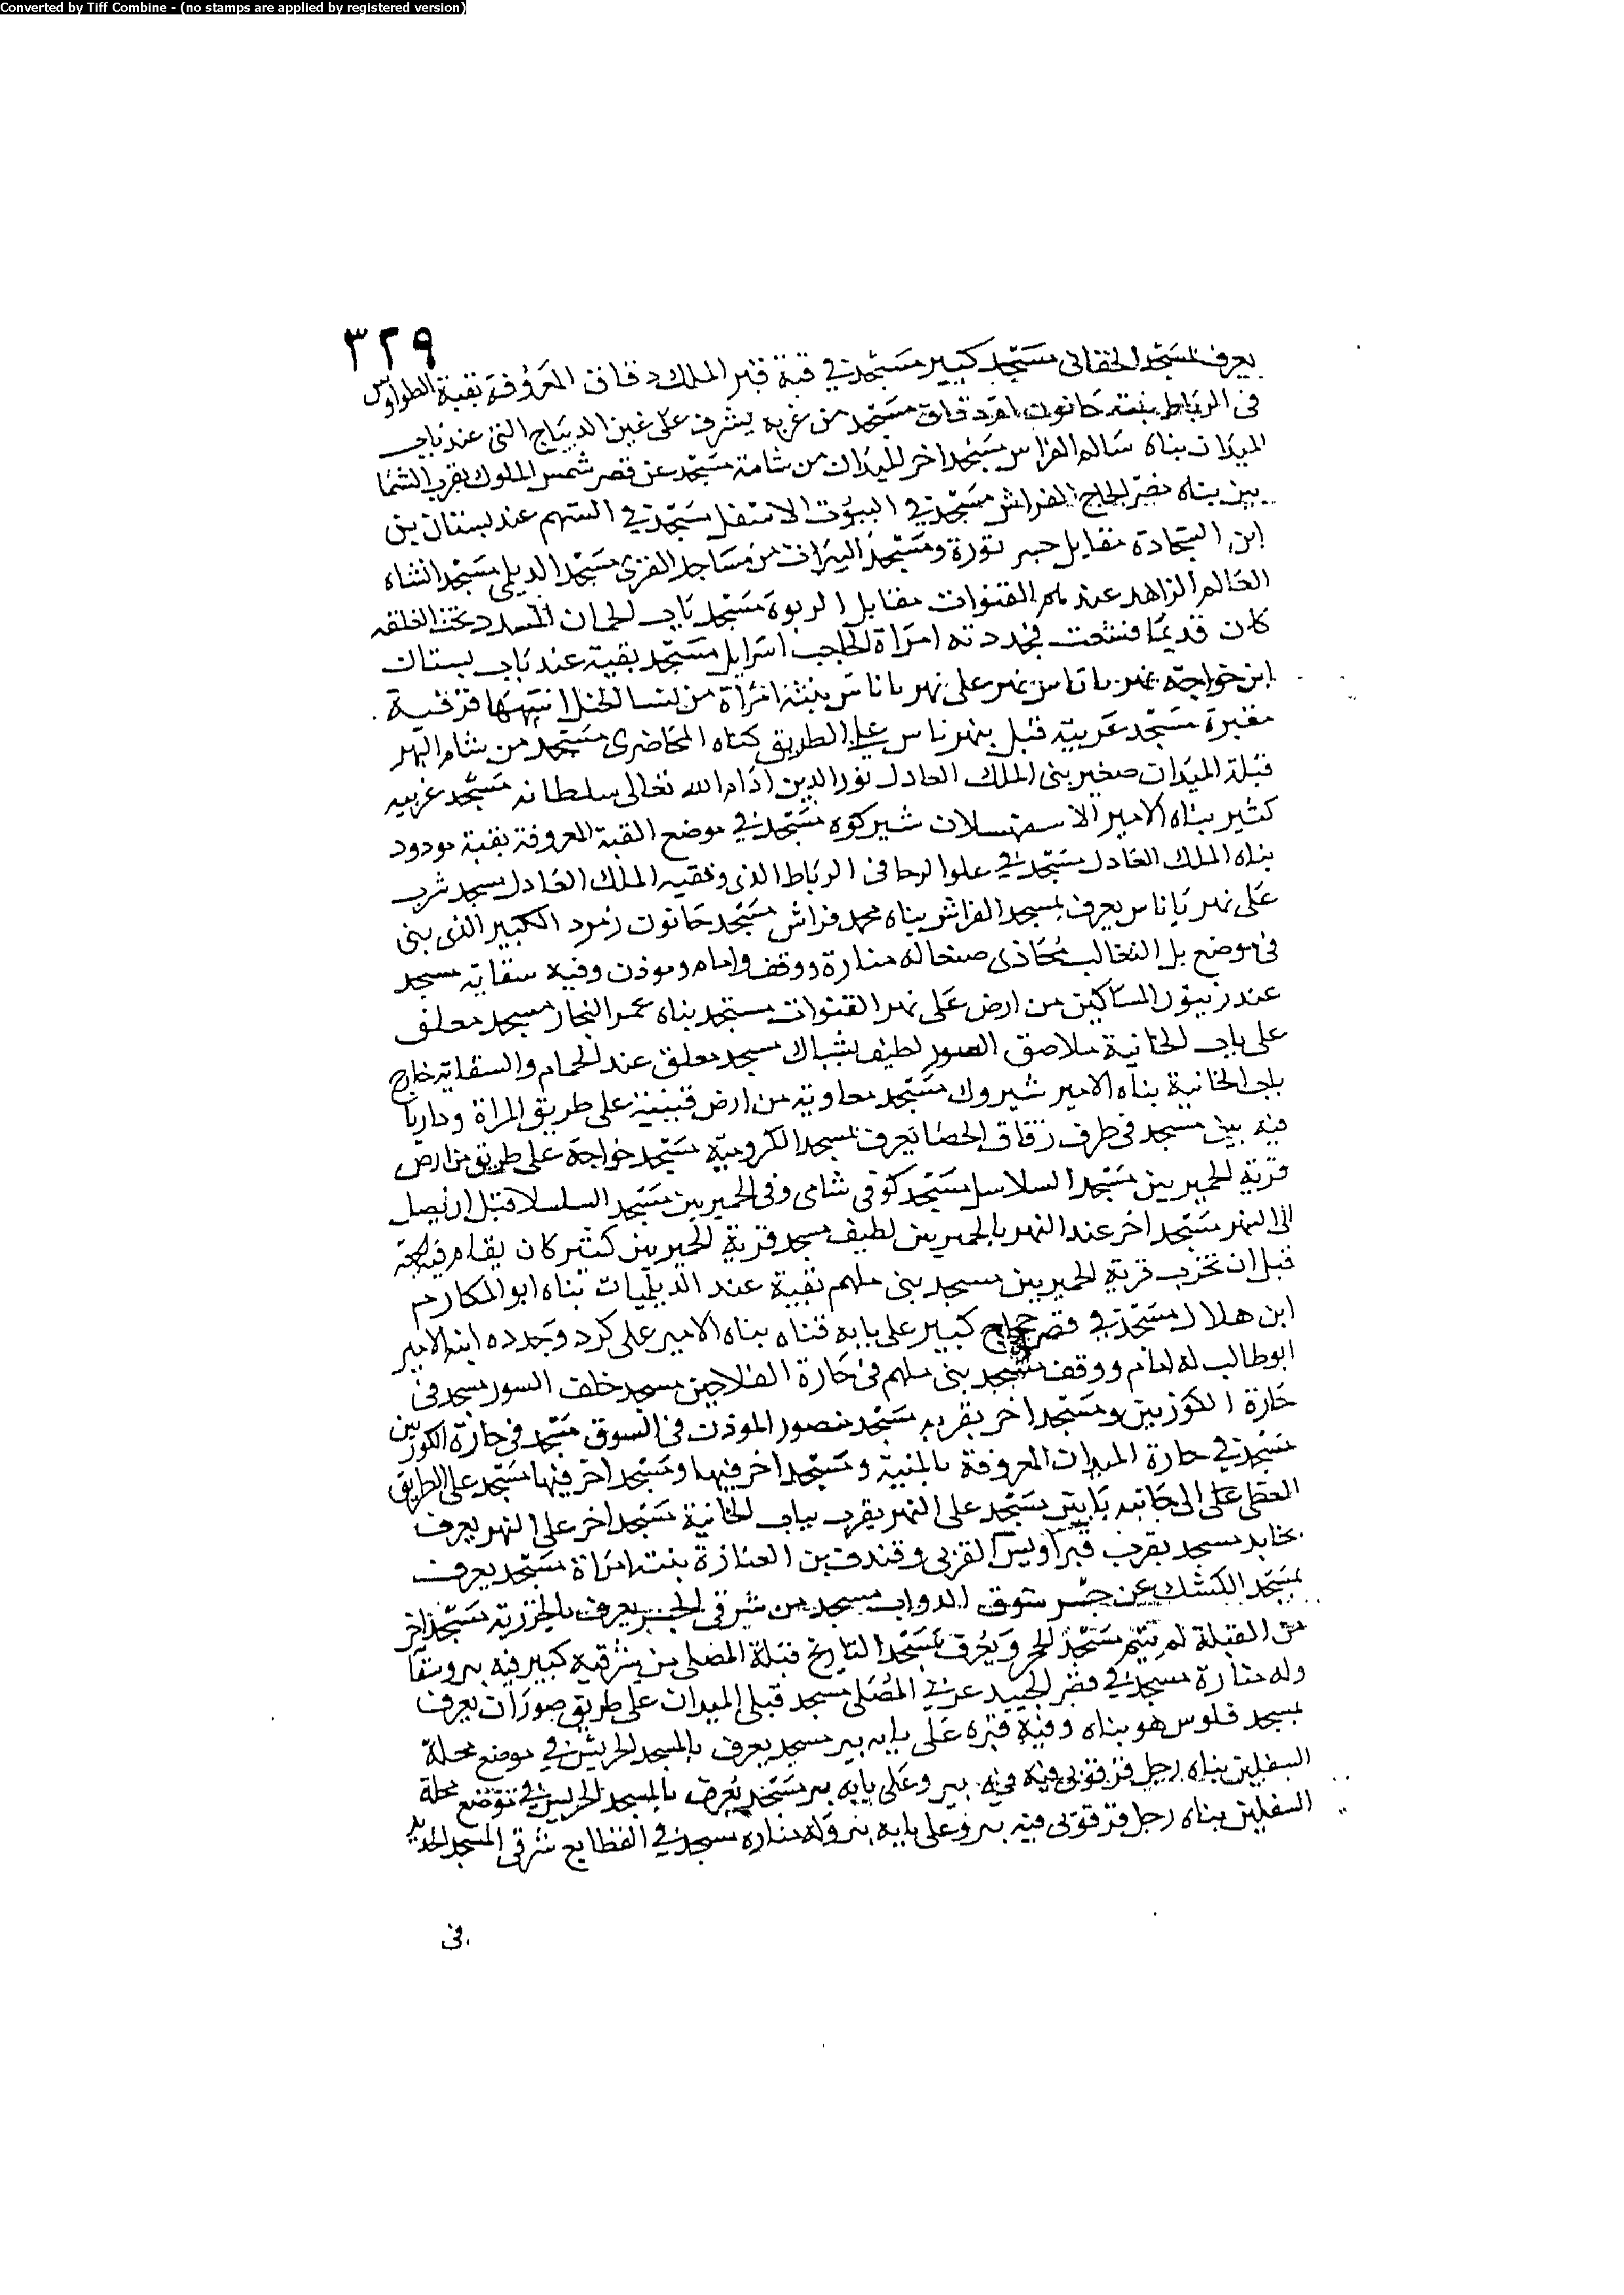 Converted by Tiff Combine - (no stamps are applied by registered version)
٣٢٩
يعرف بمسجد الخفانى مسجد كبير مسجد فى قبة قبر الملك دقاق المعروفة بقبة الطواويس
فى الرباط بنته خاتون ام دقاق مسجد من غربه يشرف على عين الديباج التى عند باب
الميدان بناه سالم الفراس مسجد اخر للميدان من شامه مسجد عن قصر شمس الملوك بقرب الشما
بناه نصر الحاج الفراش مسجد فى البيوت الاسفل مسجد فى السهم عند بستان بن
ابن السجادة مقابل جسر تورة ومسجد النيران من مساجد القزى مسجد الديلمى مسجد انشاه
العالم الزاهد عند القنوات مقابل الربوة مسجد باب تحت القلعه
كان قديما فشعت فجددته امراة الحاجب اسرايل مسجد بقية عند باب بستان
ابن خواجة نهر باناس نهر على نهر باناس بنته امراة من
مقبرة مسجد غربية قبل بنهر ناس على الطريق كناه المحاضرى مسجد من شام النهر
قبلة الميدان صغير بنى الملك العادل نور الدين ادام الله تعالى سلطانه مسجد غربيه
كثير بناه الامير الاسفهسلان شيركوه مسجد فى موضع القبة المعروفة بقبة مودود
بناه الملك العادل مسجد فى علوا لرحا فى الرباط الذى وقفيه الملك العادل مسجد شرب
على نهر باناس يعرف بمسجد الفراش بناه محمد فراش مسجد خاتون زمرد الكبير الذى بنى
فى موضع بل الثعالب محاذى صنعا له منارة ووقف وامام وموذن وفيه سقاية مسجد
عند زيتون المساكين من ارض على نهر القنوات مسجد بناه عمر النجار مسجد معلق
على باب الجانية ملاصق السور لطيف بشباك مسجد معلق عند الحمام والسقاية خارج
باب الجانية بناه الامير شيروك مسجد معاوية من ارض قينية على طريق المزاة وداريا
فيه بير مسجد فى طرف زقاق الحصا يعرف بمسجد الكرومية مسجد خواجة على طريق من ارض
قرية الحميريين مسجد السلاسل مسجد كوفى شامى وفى الحميريين مسجد السلسلا قبل ان يصل
الى النهر مسجد اخر عند النهر بالحميريين لطيف مسجد قرية الحميريين كثير كان يقام فيه
قبل ان تخرب قرية الحميريين مسجد بنى ملهم بقية عند الديلميات بناه ابو المكارم
ابن هلال مسجد فى قصر حجاج كبير على بابه قناه بناه الامير على كرد وجدده ابنه الامير
ابوطالب له امام ووقف مسجد بنى ملهم فى حارة الفلاحين مسجد خلف السور مسجد فى
حارة الكوزيين ومسجد اخر بقربه مسجد منصور الموذن فى السوق مسجد فى حارة الكوزيين
مسجد فى حارة الميدان المعروفة بالمنية ومسجد اخر فيها ومسجد اخر فيها مسجد على الطريق
العظمى على الى جانبه بابين مسجد على النهر بقرب بباب الجانية مسجد اخر على النهر يعرف
بخالد مسجد بقرب قبر اويس القزنى وقندق بن العنازة بنته امراة مسجد يعرف
بمسجد الكشك عن جسر سوق الدواب مسجد من شرقى الجسر يعرف بالجزرية مسجد اخر
من القبلة لم يتم مسجد الحجر ويعرف بمسجد التاريخ قبلة المصلى من شرقيه كبير فيه بير وسقا
وله منارة مسجد فى قصر الجنيد عن فى المصلى مسجد قبلى الميدان على طريق صوران يعرف
بمسجد فلوس هو بناه وفيه قبره على بابه بير مسجد يعرف بالمسجد الحريش فى موضع محلة
السفليين بناه رجل قرقوبى فيه فيه بير وعلى بابه بير مسجد يعرف بالمسجد الحريش فى موضع محلة
السفليين بناه رجل قرقوبى فيه بير وعلى بابه بير وله مناره مسجد فى القطايع شرقى المسجد الجديد
فى